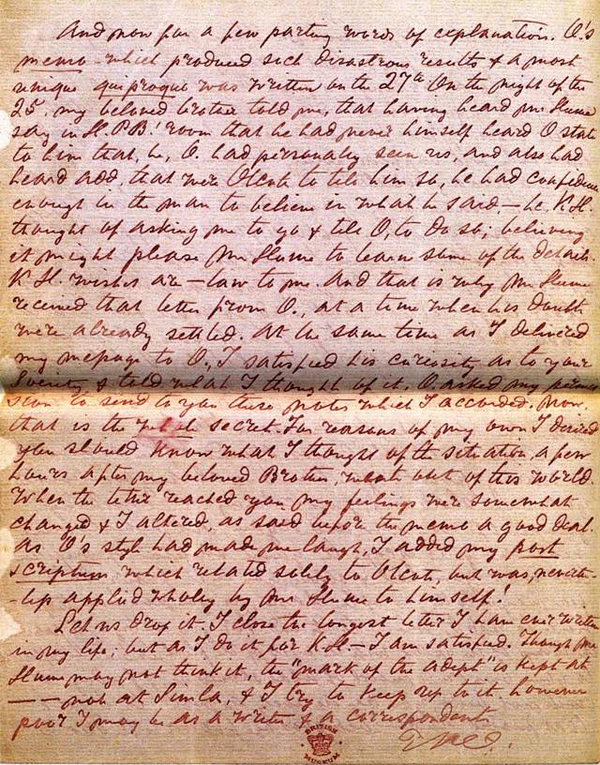 And now for a few parting words of explanation. O's
memo — which produced sich disastrous results & a most
unique quiproquo was written on the 27th On the night of the
25, my beloved brother told me, that having heard Mr Hume
say in H.P.B.'s room that he had never himself heard O state
to him that, he, O. had personally seen us, and also had
heard add, that were Olcott to tell him so, he had confidence
enough in the man to believe in what he said, — he K.H.
thought of asking me to go & tell O, to do so; believing
it might please Mr Hume to learn some of the details.
K.H. wishes are — law to me. And that is why Mr Hume
received that letter from O., at a time when his doubts
were already settled. At the same time as I delivered
my message to O, I satisfied his curiosity as to your
Society & told what I thought of it. O. asked my permis
sion to send to you these notes which I accorded. Now,
that is the whole secret. For reasons of my own I desired
you should know what I thought of the situation, a few
hours after my beloved Brother, went out of this world.
When the letter reached you my feelings were somewhat
changed & I altered, as said before the memo a good deal.
As O's style had made me laugh, I added my post
scriptum which related solely to Olcott, but was, neverth-
less applied wholly by Mr Hume to himself!
Let us drop it. I close the longest letter I have ever written
in my life; but as I do it for K.H — I am satisfied. Though Mr
Hume may not think it, the "mark of the adept" is kept at
— — not at Simla, & I try to keep up to it, however
poor I may be as a writer & a correspondent.
BRITISH
MUSEUM